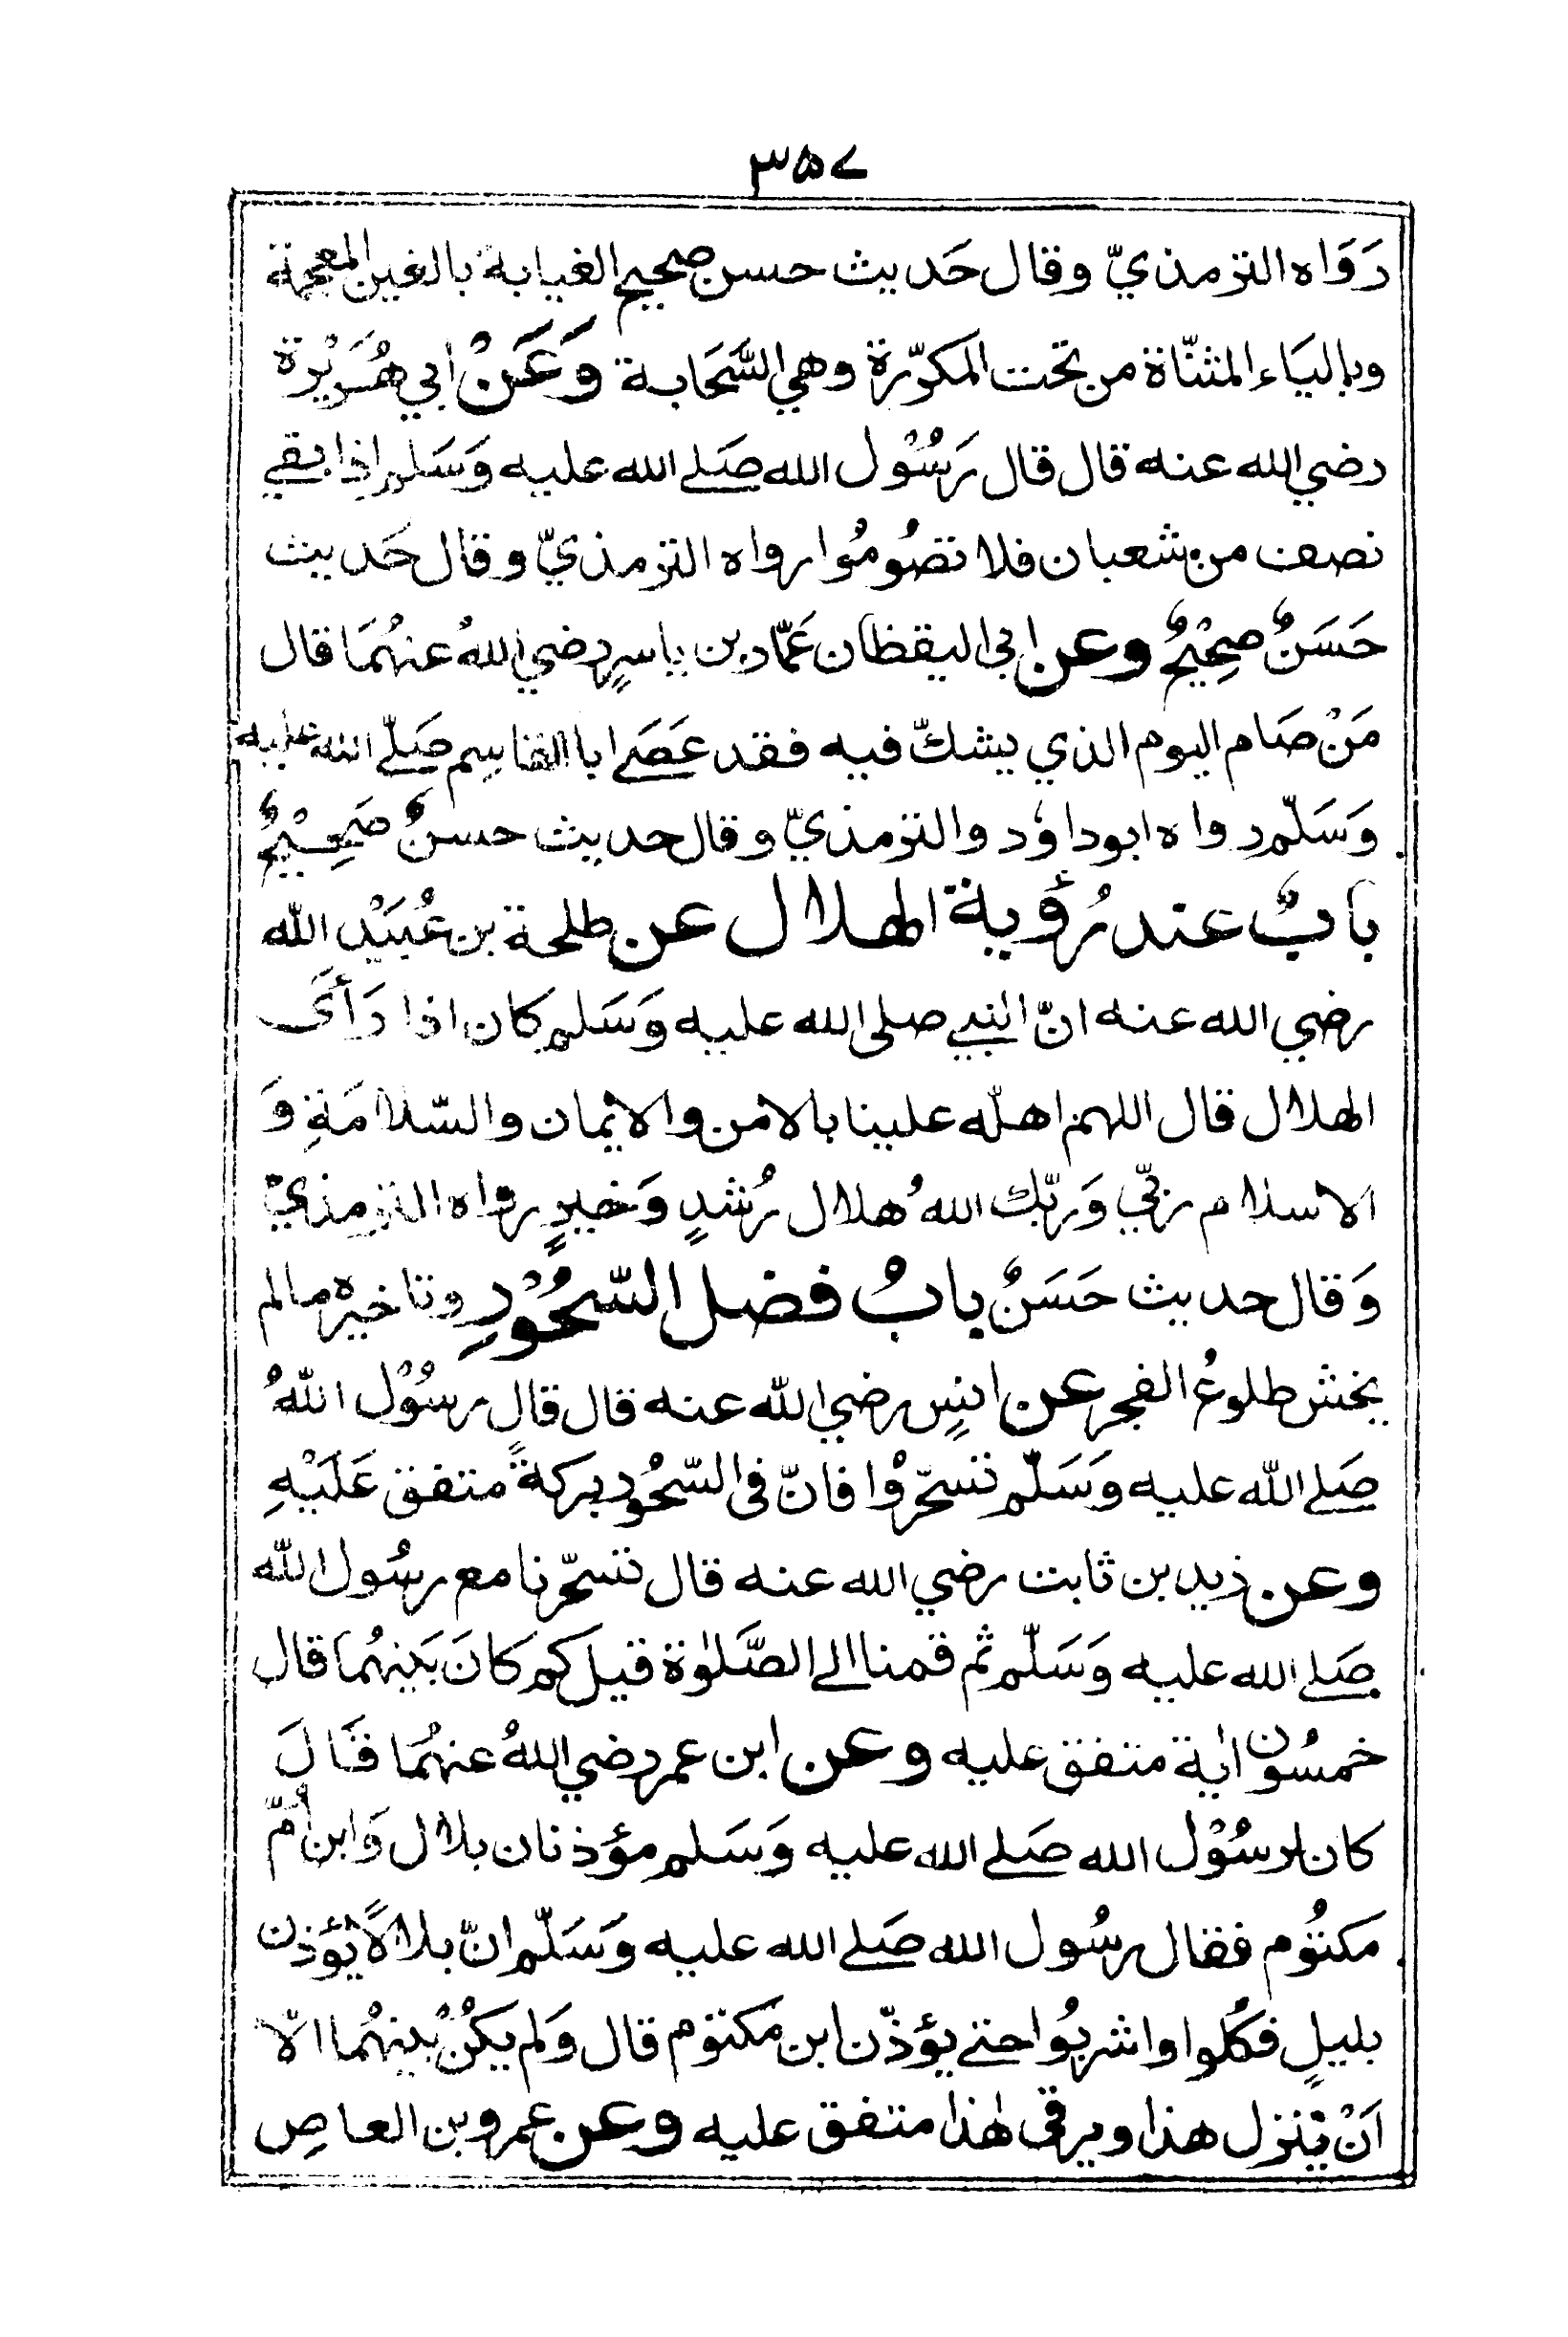 ٣٥٧
رَوَاه الترمذيّ وقال حَديث حسن صحيح الغيابة بالغين المعجمة
وبالياء المثنّاة من تحت المكرّرة وهي السَّحَابة وَعَنْ ابي هُرَيْرة
رضي الله عنه قال قال رَسُوْل الله صَلے الله عليه وَسَلم اِذا بقے
نصف من شعبان فلا تصُومُوا رواه الترمذيّ وقال حَديث
حَسَنٌ صحِيْحٌ وعن ابى اليقظان عَمّار بن ياسرٍ رضي اللهُ عنهُمَا قال
مَنْ صَام اليوم الذي يشكّ فيه فقد عَصَے ابا القاسِم صَلّے الله عليه
وَسَلّم رواه ابوداوٗد والترمذيّ وقال حديث حسنٌ صَحِيْحٌ
بابٌ عند رُؤية الهلال عن طلحة بن عُبَيْد الله
رضي الله عنه انّ النبے صلى الله عليه وَسَلم كان اذا رَأَى
الهلال قال اللهم اهلّه علينا بالامن والايمان والسّلامَةِ وَ
الاسلام ربّي وَربّك اللهُ هلال رُشدٍ وَخيرٍ رواه الترمذيّ
وَقال حديث حَسَنٌ بابُ فضل السّحُوْرِ وتاخيره مالم
يخش طلوعُ الفجر عن انسٍ رضي الله عنه قال قال رسُوْل اللهُ
صَلے الله عليه وَسَلّم تسحّرُوْا فانّ فى السّحُور بركةً متفق عَلَيْهِ
وعن زيد بن ثابت رضي الله عنه قال تسحّرنا مع رسُول الله
صَلے الله عليه وَسَلّم ثم قمنا الے الصَّلوٰة قيل كم كانَ بَينهُما قال
خمسُون اٰية متفق عليه وعن ابن عمر رضي اللهُ عنهُمَا قَالَ
كان لرسُوْل الله صَلے الله عليه وَسَلم مؤذنان بلال وَابن اُمّ
مكتُوم فقال رسُول الله صَلے الله عليه وَسَلّم انّ بلالًا يُؤذن
بليلٍ فكُلوا واشربُوا حتے يؤذّن ابن مَكتوم قال وَلم يكُنْ بَينهُما الّا
اَنْ يَنزل هذا ويرقى هٰذا متفق عليه وعن عمرو بن العاصِ